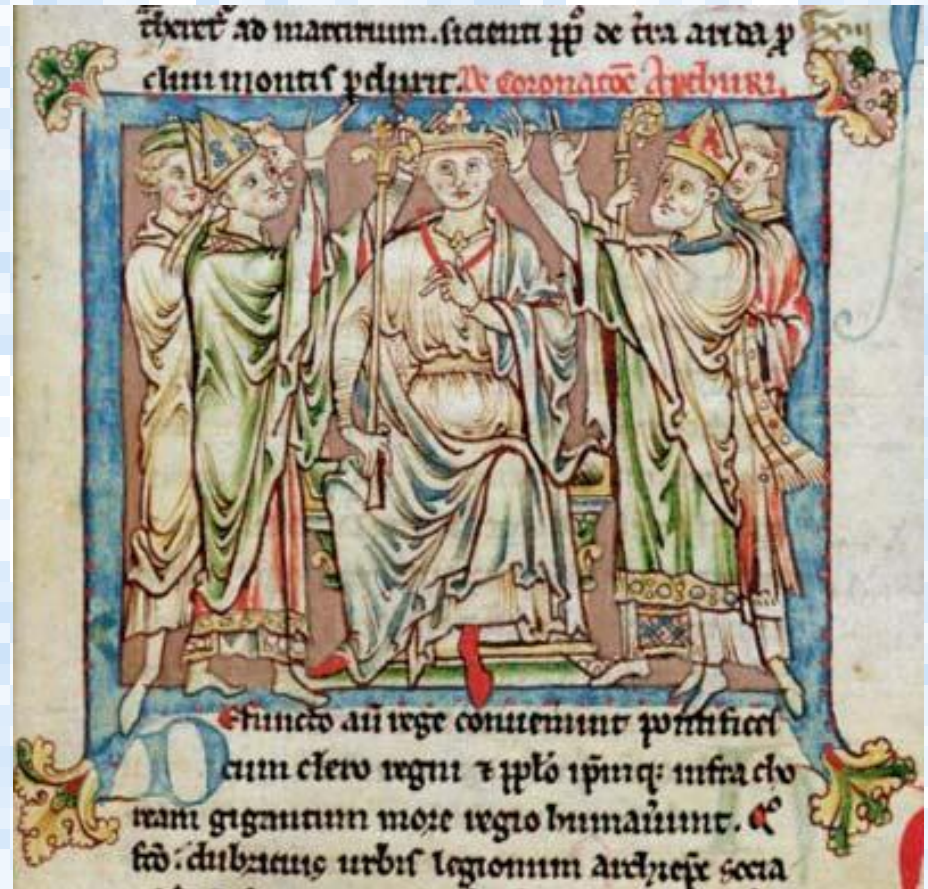 ad martirium. sicienti pp̄ de tr̄a arida p
clivi montis pduxit. De coronac̄oe Arthuri.
Defuncto aū rege conveniunt pontifices
cum clero regni ⁊ pplō ip̄mq; infra cho
ream gigantum more regio humav̄unt. Qͦ
fcō. dubricius urbis legionum archiepc̄ socia